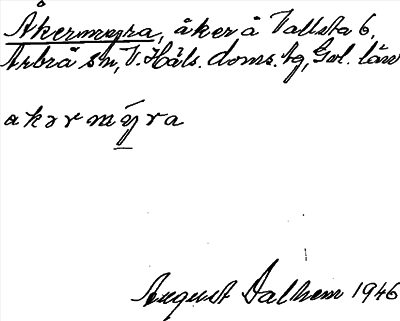 Åkermyra, åker å Vallsta 6,
Arbrå sn, V. Häls. doms. tg, Gvl. län
akərmy�́ra
August Dalhem 1946